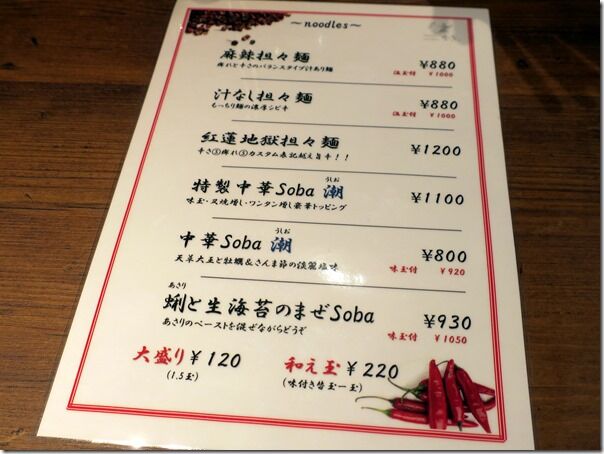 ～noodles～
麻辣担々麺 ¥880
痺れと辛さのバランスタイプ汁あり麺 温玉付 ¥1000
汁なし担々麺 ¥880
もっちり麺の濃厚シビ辛 温玉付 ¥1000
紅蓮地獄担々麺 ¥1200
辛さ③痺れ③カスタム表記越え旨辛！！
うしお
特製中華Soba 潮 ¥1100
味玉・叉焼増し・ワンタン増し豪華トッピング
うしお
中華Soba 潮 ¥800
天草大王と牡蠣＆さんま節の淡麗塩味 味玉付 ¥920
あさり
蜊と生海苔のまぜSoba ¥930
あさりのペーストを混ぜながらどうぞ 味玉付 ¥1050
大盛り ¥120 和え玉 ¥220
(1.5玉) (味付き替玉一玉)